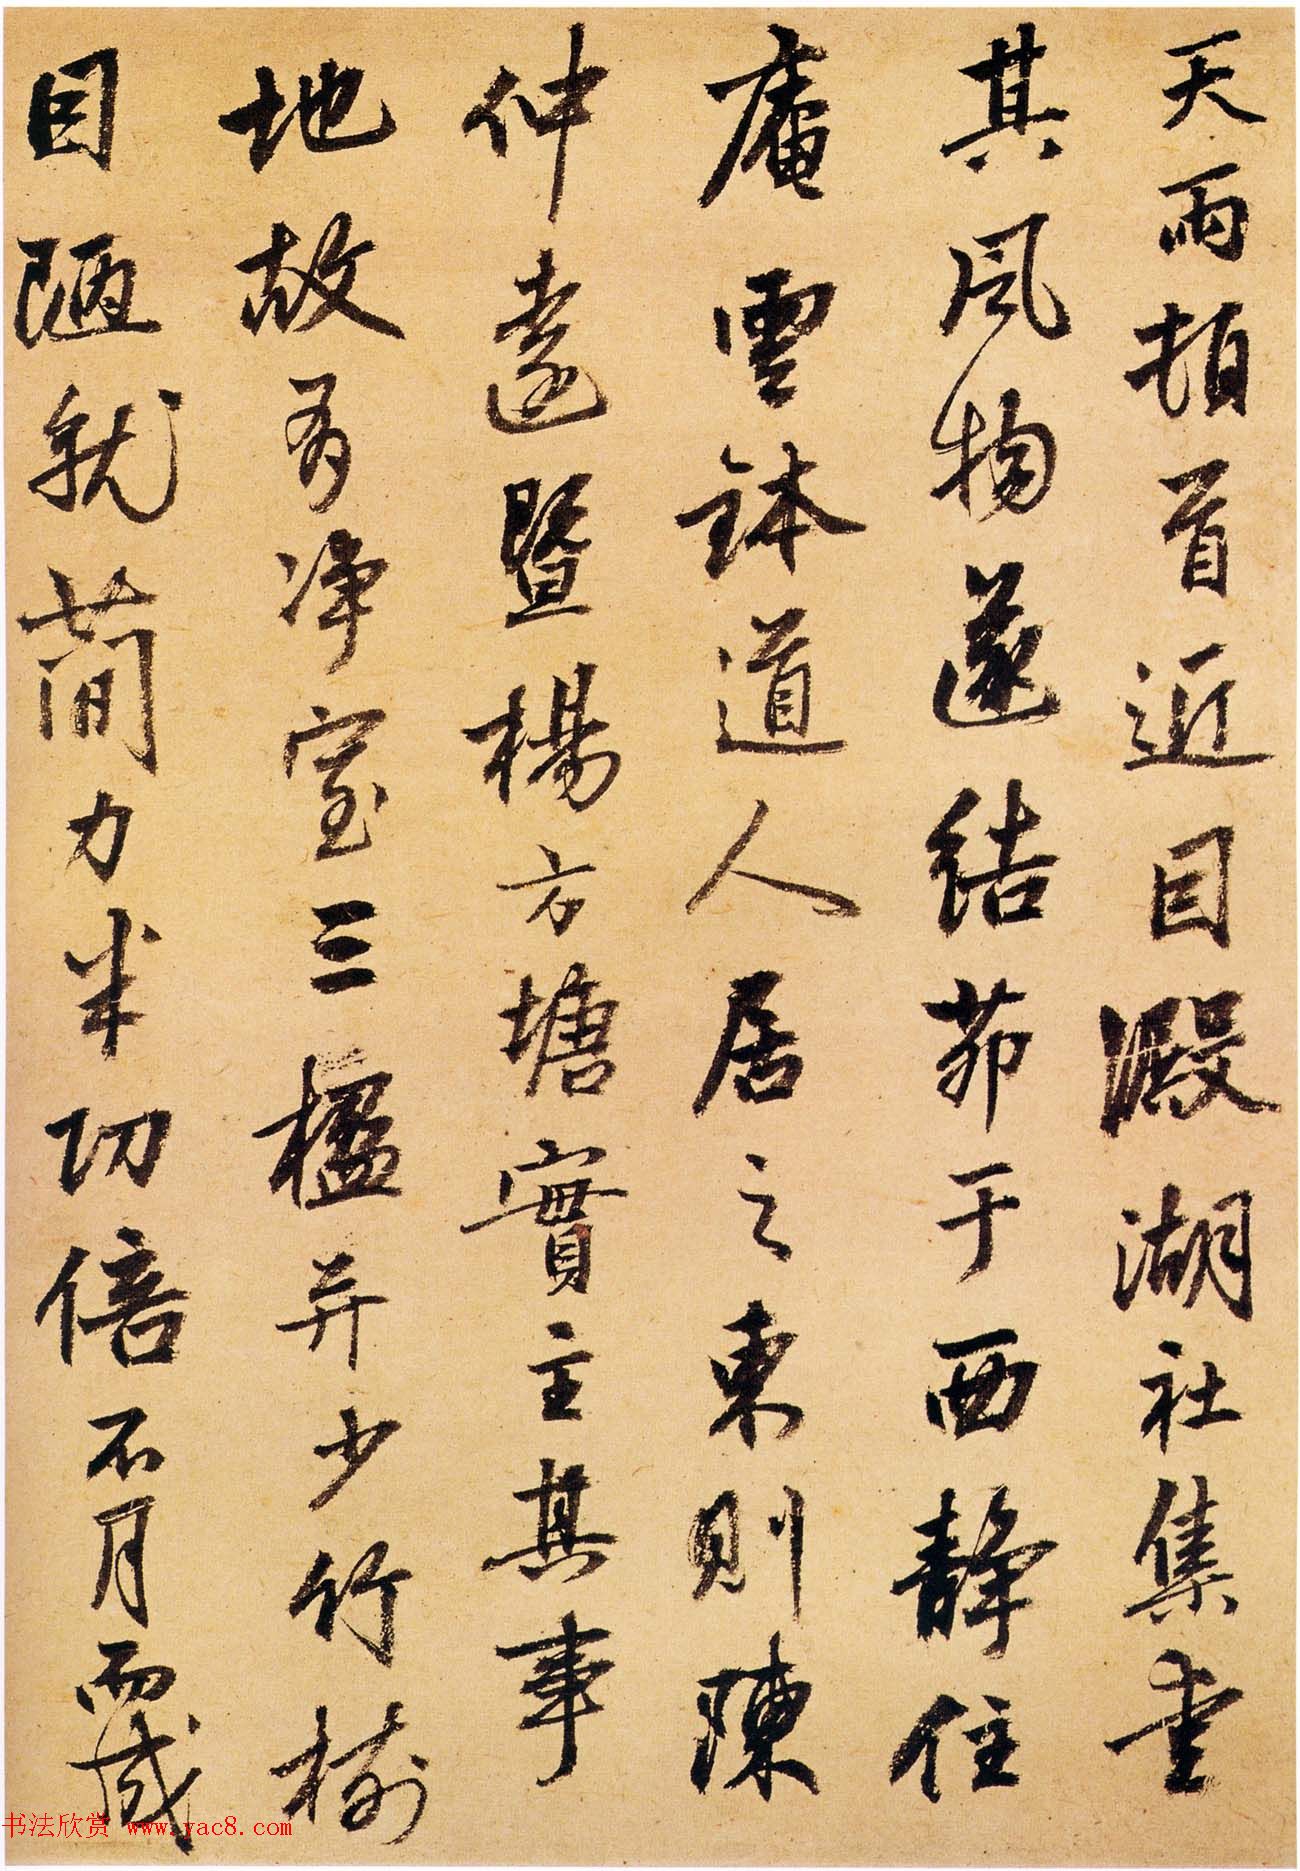 天雨頓首近因澱湖社集重
其風物遂結茆于西靜住
庵雲鉢道人居之東則陳
仲遠暨楊方塘實主其事
地故有淨室三楹并少竹樹
因陋就簡力半功倍不月而成
书法欣赏 www.yac8.com